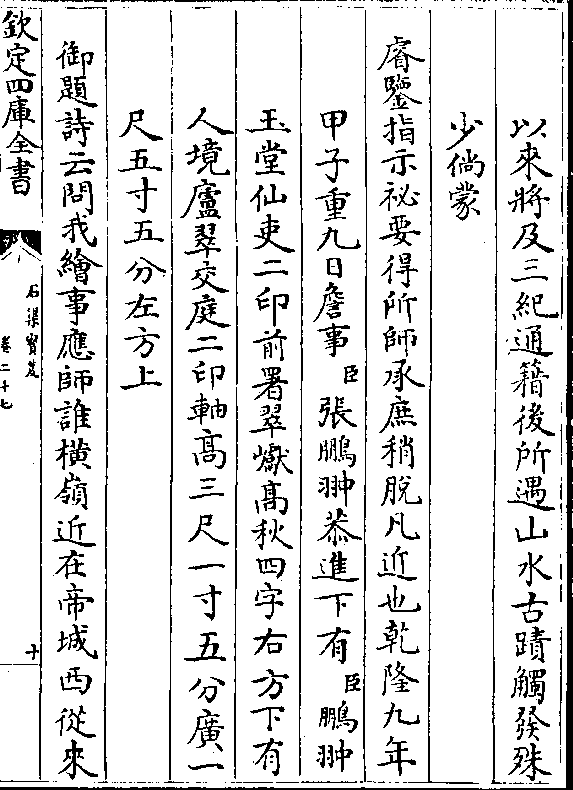 以來將及三紀通籍後所遇山水古蹟觸發殊
少倘蒙
睿鑒指示祕要得所師承庶稍脫凡近也乾隆九年
甲子重九日詹事臣張鵬翀恭進下有臣鵬翀
玉堂仙吏二印前署翠巘高秋四字右方下有
人境廬翠交庭二印軸高三尺一寸五分廣一
尺五寸五分左方上
御題詩云問我繪事應師誰橫嶺近在帝城西從來
欽定四庫全書
石渠寶笈
卷二十七
十